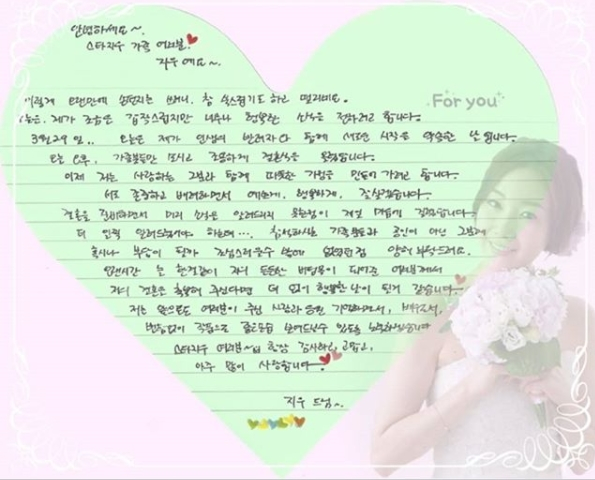 안녕하세요~.
스타지우 가족 여러분.
지우예요~.
For you
이렇게 오랜만에 손편지를 쓰려니, 참 쑥스럽기도 하고 떨리네요.
오늘은, 제가 조금은 갑작스럽지만 너무나 행복한 소식을 전하려고 합니다.
3월 29일.. 오늘은 제가 인생의 반려자와 함께 새로운 시작을 약속한 날입니다.
오늘 오후, 가족분들만 모시고 조용하게 결혼식을 올렸습니다.
이제 저는 사랑하는 그분과 함께 따뜻한 가정을 만들어 가려고 합니다.
서로 존중하고 배려하면서 예쁘게, 행복하게, 잘 살겠습니다.
결혼을 준비하면서 미리 소식을 알려드리지 못한점이 제일 마음에 걸렸습니다.
더 일찍 알려드렸어야 하는데..., 참석하시는 가족분들과 공인이 아닌 그분께
혹시나 부담이 될까 조심스러울수 밖에 없었던점 양해 부탁드려요.
오랜시간 늘 한결같이 저의 든든한 버팀목이 되어준 여러분께서
저의 결혼을 축복해 주신다면 더 없이 행복한 날이 될거 같습니다.
저는 앞으로도 여러분이 주신 사랑과 응원 기억하면서, 배우로서,
변함없이 작품으로 좋은모습 보여드릴수 있도록 노력하겠습니다
스타지우 여러분~ 항상 감사하고 고맙고,
아주 많이 사랑합니다.
지우 드림~.